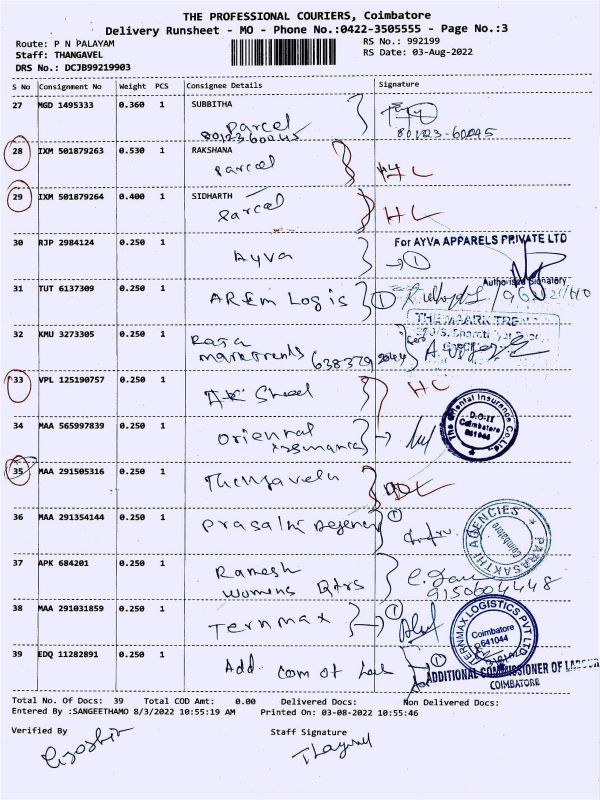 THE PROFESSIONAL COURIERS, Coimbatore
Delivery Runsheet - MO - Phone No.:0422-3505555 - Page No.:3
Route: P N PALAYAM RS No.: 992199
Staff: THANGAVEL RS Date: 03-Aug-2022
DRS No.: DCJB99219903
S No Consignment No Weight PCS Consignee Details Signature
27 MGD 1495333 0.360 1 SUBBITHA
Parcel
80123-60045 80123-60045
28 IXM 501879263 0.530 1 RAKSHANA
Parcel
29 IXM 501879264 0.400 1 SIDHARTH
Parcel HC
30 RJP 2984124 0.250 1 Ayva For AYVA APPARELS PRIVATE LTD
1
Authorised Signatory
31 TUT 6137309 0.250 1 Logis 1
THE MAARK TRE
32 KMU 3273305 0.250 1 Raja
marktrends
33 VPL 125190757 0.250 1 AK HC
34 MAA 565997839 0.250 1 Oriental The Oriental Insurance Co. Ltd.
D.O-II
Coimbatore
641044
35 MAA 291505316 0.250 1 Thangavelu
36 MAA 291354144 0.250 1 1 PARASAKTHI AGENCIES
Coimbatore
37 APK 684201 0.250 1 Ramesh
womens 9150604448
38 MAA 291031859 0.250 1 Ternmax 1 TERNMAX LOGISTICS PVT LTD
Coimbatore
641044
39 EDQ 11282891 0.250 1 Add. com of 1
ADDITIONAL COMMISSIONER OF LABOUR
COIMBATORE
Total No. Of Docs: 39 Total COD Amt: 0.00 Delivered Docs: Non Delivered Docs:
Entered By :SANGEETHAMO 8/3/2022 10:55:19 AM Printed On: 03-08-2022 10:55:46
Verified By Staff Signature